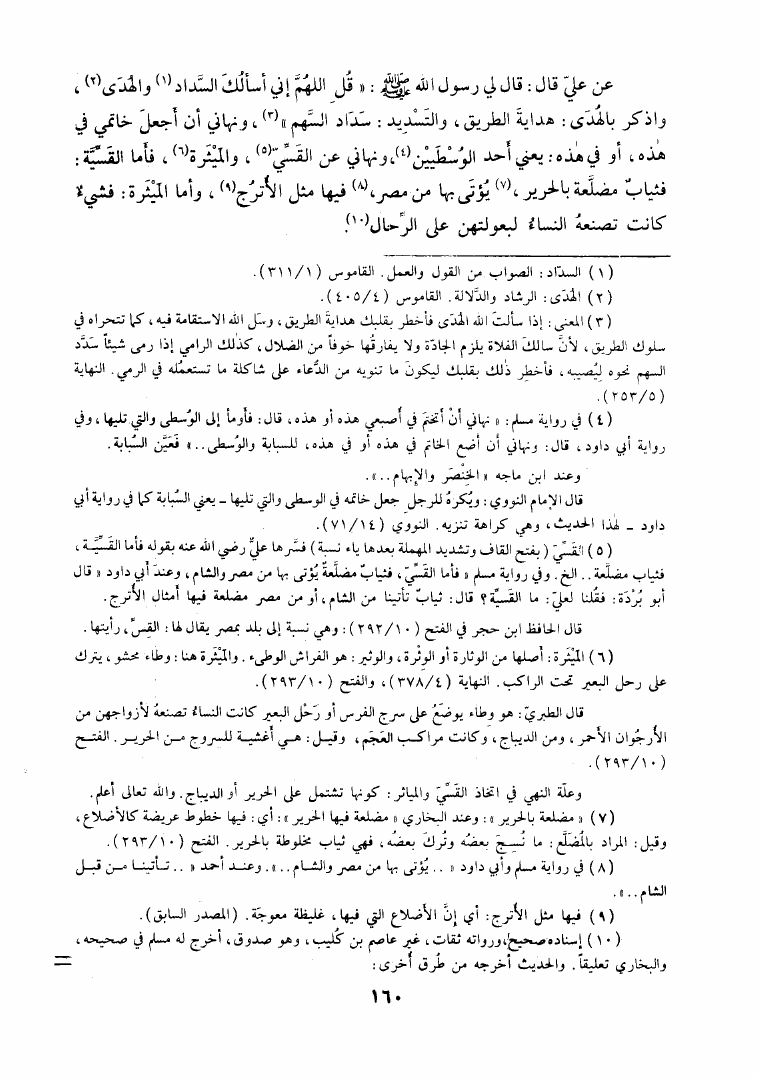 عن عليّ قال : قال لي رسول الله ﷺ : « قُل اللهمَّ إني أسألُكَ السَّداد(١) والهُدَى(٢) ،
واذكر بالهُدَى : هدايةَ الطريق ، والتَسْديد : سَدَادَ السَّهم »(٣) ، ونهاني أن أَجعلَ خاتمي في
هٰذه ، أو في هٰذه : يعني أحد الوُسْطَيَيْن(٤)، ونهاني عن القَسِّيّ(٥) ، والمِيْثَرة(٦) ، فأما القَسِّيَّة :
فثيابٌ مضلَّعة بالحرير ،(٧) يُؤتَى بها من مصر،(٨) فيها مثل الأُترُج(٩) ، وأما المِيْثَرة : فشيءٌ
كانت تصنعهُ النساءُ لبعولتهن على الرِّحال(١٠).
(١) السدَاد : الصواب من القول والعمل. القاموس (٣١١/١).
(٢) الهُدَى : الرشاد والدَّلالة. القاموس (٤٠٥/٤).
(٣) المعنى : إذا سألتَ الله الهُدَى فأخطر بقلبك هدايةَ الطريق ، وسَل الله الاستقامة فيه ، كما تتحراه في
سلوك الطريق ، لأنَّ سالكَ الفلاة يلزم الجادّة ولا يفارقُها خوفاً من الضلال ، كذلك الرامي إذا رمى شيئاً سَدَّد
السهم نحوه لِيُصيبه ، فأخطِر ذٰلك بقلبك ليكونَ ما تنويه من الدُّعاء على شاكلة ما تستعمُله في الرمي. النهاية
(٢٥٣/٥)
(٤) في رواية مسلم : « نهاني أَنْ أَتختَّمَ في أصبعي هذه أو هذه ، قال : فأومأ إلى الوُسطى والتي تليها ، وفي
رواية أبي داود ، قال : ونهاني أن أضع الخاتم في هذه أو في هذه ، للسبابة والوُسطى .. » فَعَيَّن السَّبابة.
وعند ابن ماجه « الخِنْصَر والإبهام .. ».
قال الإمام النووي : ويُكرهُ للرجلِ جعل خاتمه في الوسطى والتي تليها ـ يعني السُّبابة كما في رواية أبي
داود ـ لهٰذا الحديث ، وهي كراهة تنزيه. النووي (٧١/١٤).
(٥) القَسِّيّ (بفتح القاف وتشديد المهملة بعدها ياء نسبة) فسَّرها عليٌّ رضي الله عنه بقوله فأما القَسِّيَّة ،
فثياب مضلَّعة .. الخ. وفي رواية مسلم « فأما القَسِّيّ ، فثيابٌ مضلَّعةٌ يُؤتَى بها من مصر والشام ، وعند أبي داود « قال
أبو بُرْدَة : فقُلنا لعليّ : ما القَسيَّة؟ قال : ثيابٌ تأتينا من الشام ، أو من مصر مضلعة فيها أمثال الأُترج.
قال الحافظ ابن حجر في الفتح (٢٩٢/١٠) : وهي نسبة إلى بلد بمصر يقال لها : القِسّ ، رأيتها.
(٦) المِيْثَرة : أصلها من الوثارة أو الوِثْرة ، والوثير : هو الفراش الوطيء. والمِيْثَرة هنا : وِطاء محشو ، يترك
على رحل البعير تحت الراكب. النهاية (٣٧٨/٤) ، والفتح (٢٩٣/١٠).
قال الطبريّ : هو وِطاء يوضَعُ على سرج الفرس أو رَحْل البعير كانت النساءُ تصنعهُ لأزواجهن من
الأُرجُوان الأحمر ، ومن الديباج ، وكانت مراكب العَجَم ، وقيل : هي أغشية للسروج من الحرير. الفتح
(٢٩٣/١٠).
وعلّة النهي في اتخاذ القَسِّيّ والمياثر : كونها تشتمل على الحرير أو الديباج. والله تعالى أعلم.
(٧) « مضلعة بالحرير » : وعند البخاري « مضلعة فيها الحرير » : أي : فيها خطوط عريضة كالأضلاع ،
وقيل : المراد بالمُضلَّع : ما نُسِجَ بعضُه وتُركَ بعضُه ، فهي ثياب مخلوطة بالحرير. الفتح (٢٩٣/١٠).
(٨) في رواية مسلم وأبي داود « .. يُؤتى بها من مصر والشام .. ». وعند أحمد « .. تأتينا من قبل
الشام .. ».
(٩) فيها مثل الأُترج : أي إنَّ الأضلاع التي فيها ، غليظة معوجّة. (المصدر السابق).
(١٠) إسناده صحيح، ورواته ثقات ، غير عاصم بن كُليب ، وهو صدوق ، أخرج له مسلم في صحيحه ،
والبخاري تعليقاً. والحديث أخرجه من طُرق أُخرى :
=
١٦٠